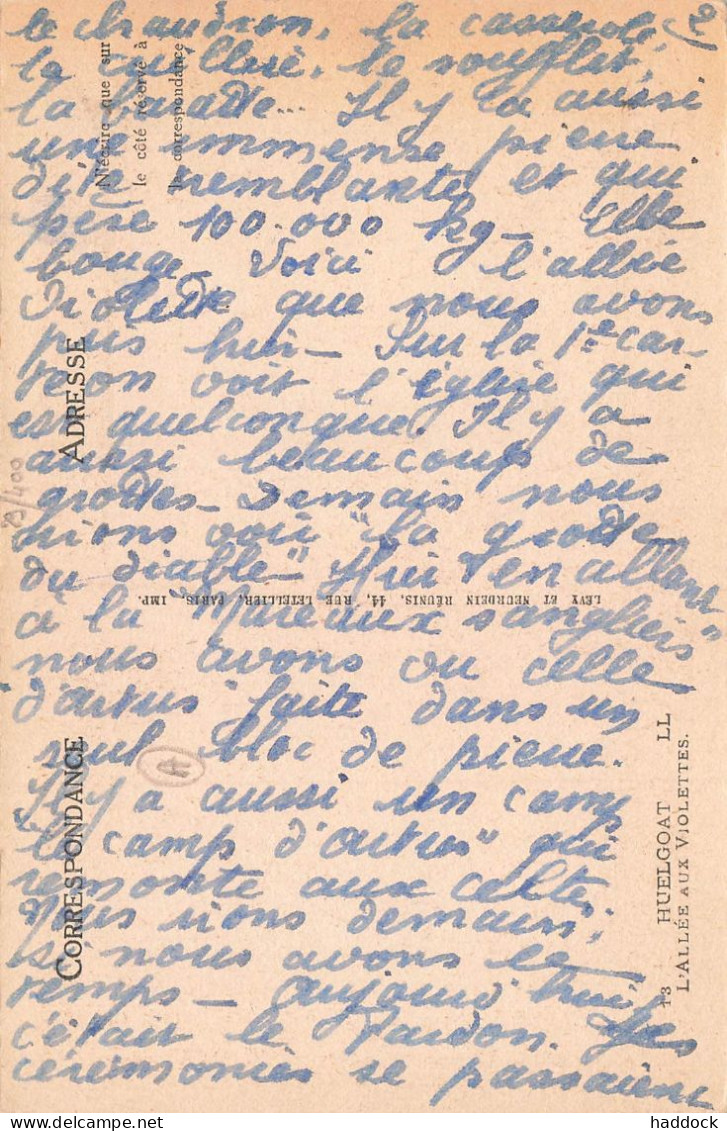 2
le chaudron, la casserole,
la cuillère, le soufflet,
la baratte... Il y a aussi
une immense pierre
dite tremblante et qui
pèse 100.000 kg - Elle
bouge - Voici l'allée
Violette que nous avons
pris hui - Sur la 1re car-
te on voit l'église qui
est quelconque. Il y a
aussi beaucoup de
grottes - Demain nous
irons voir "la grotte
du diable" Hui en allant
à la "Mare aux sangliers"
nous avons vu celle
d'artus faite dans un
seul bloc de pierre.
Il y a aussi un camp
"le camp d'artus" qui
remonte aux celtes
Nous irons demain,
si nous avons le
temps - aujourd'hui
c'était le Pardon. Les
cérémonies se passaient
N'écrire que sur
le côté réservé à
la correspondance
ADRESSE
CORRESPONDANCE
LEVY ET NEURDEIN RÉUNIS, 44, RUE LETELLIER, PARIS, IMP.
13 HUELGOAT LL
L'ALLÉE AUX VIOLETTES.
A
haddock